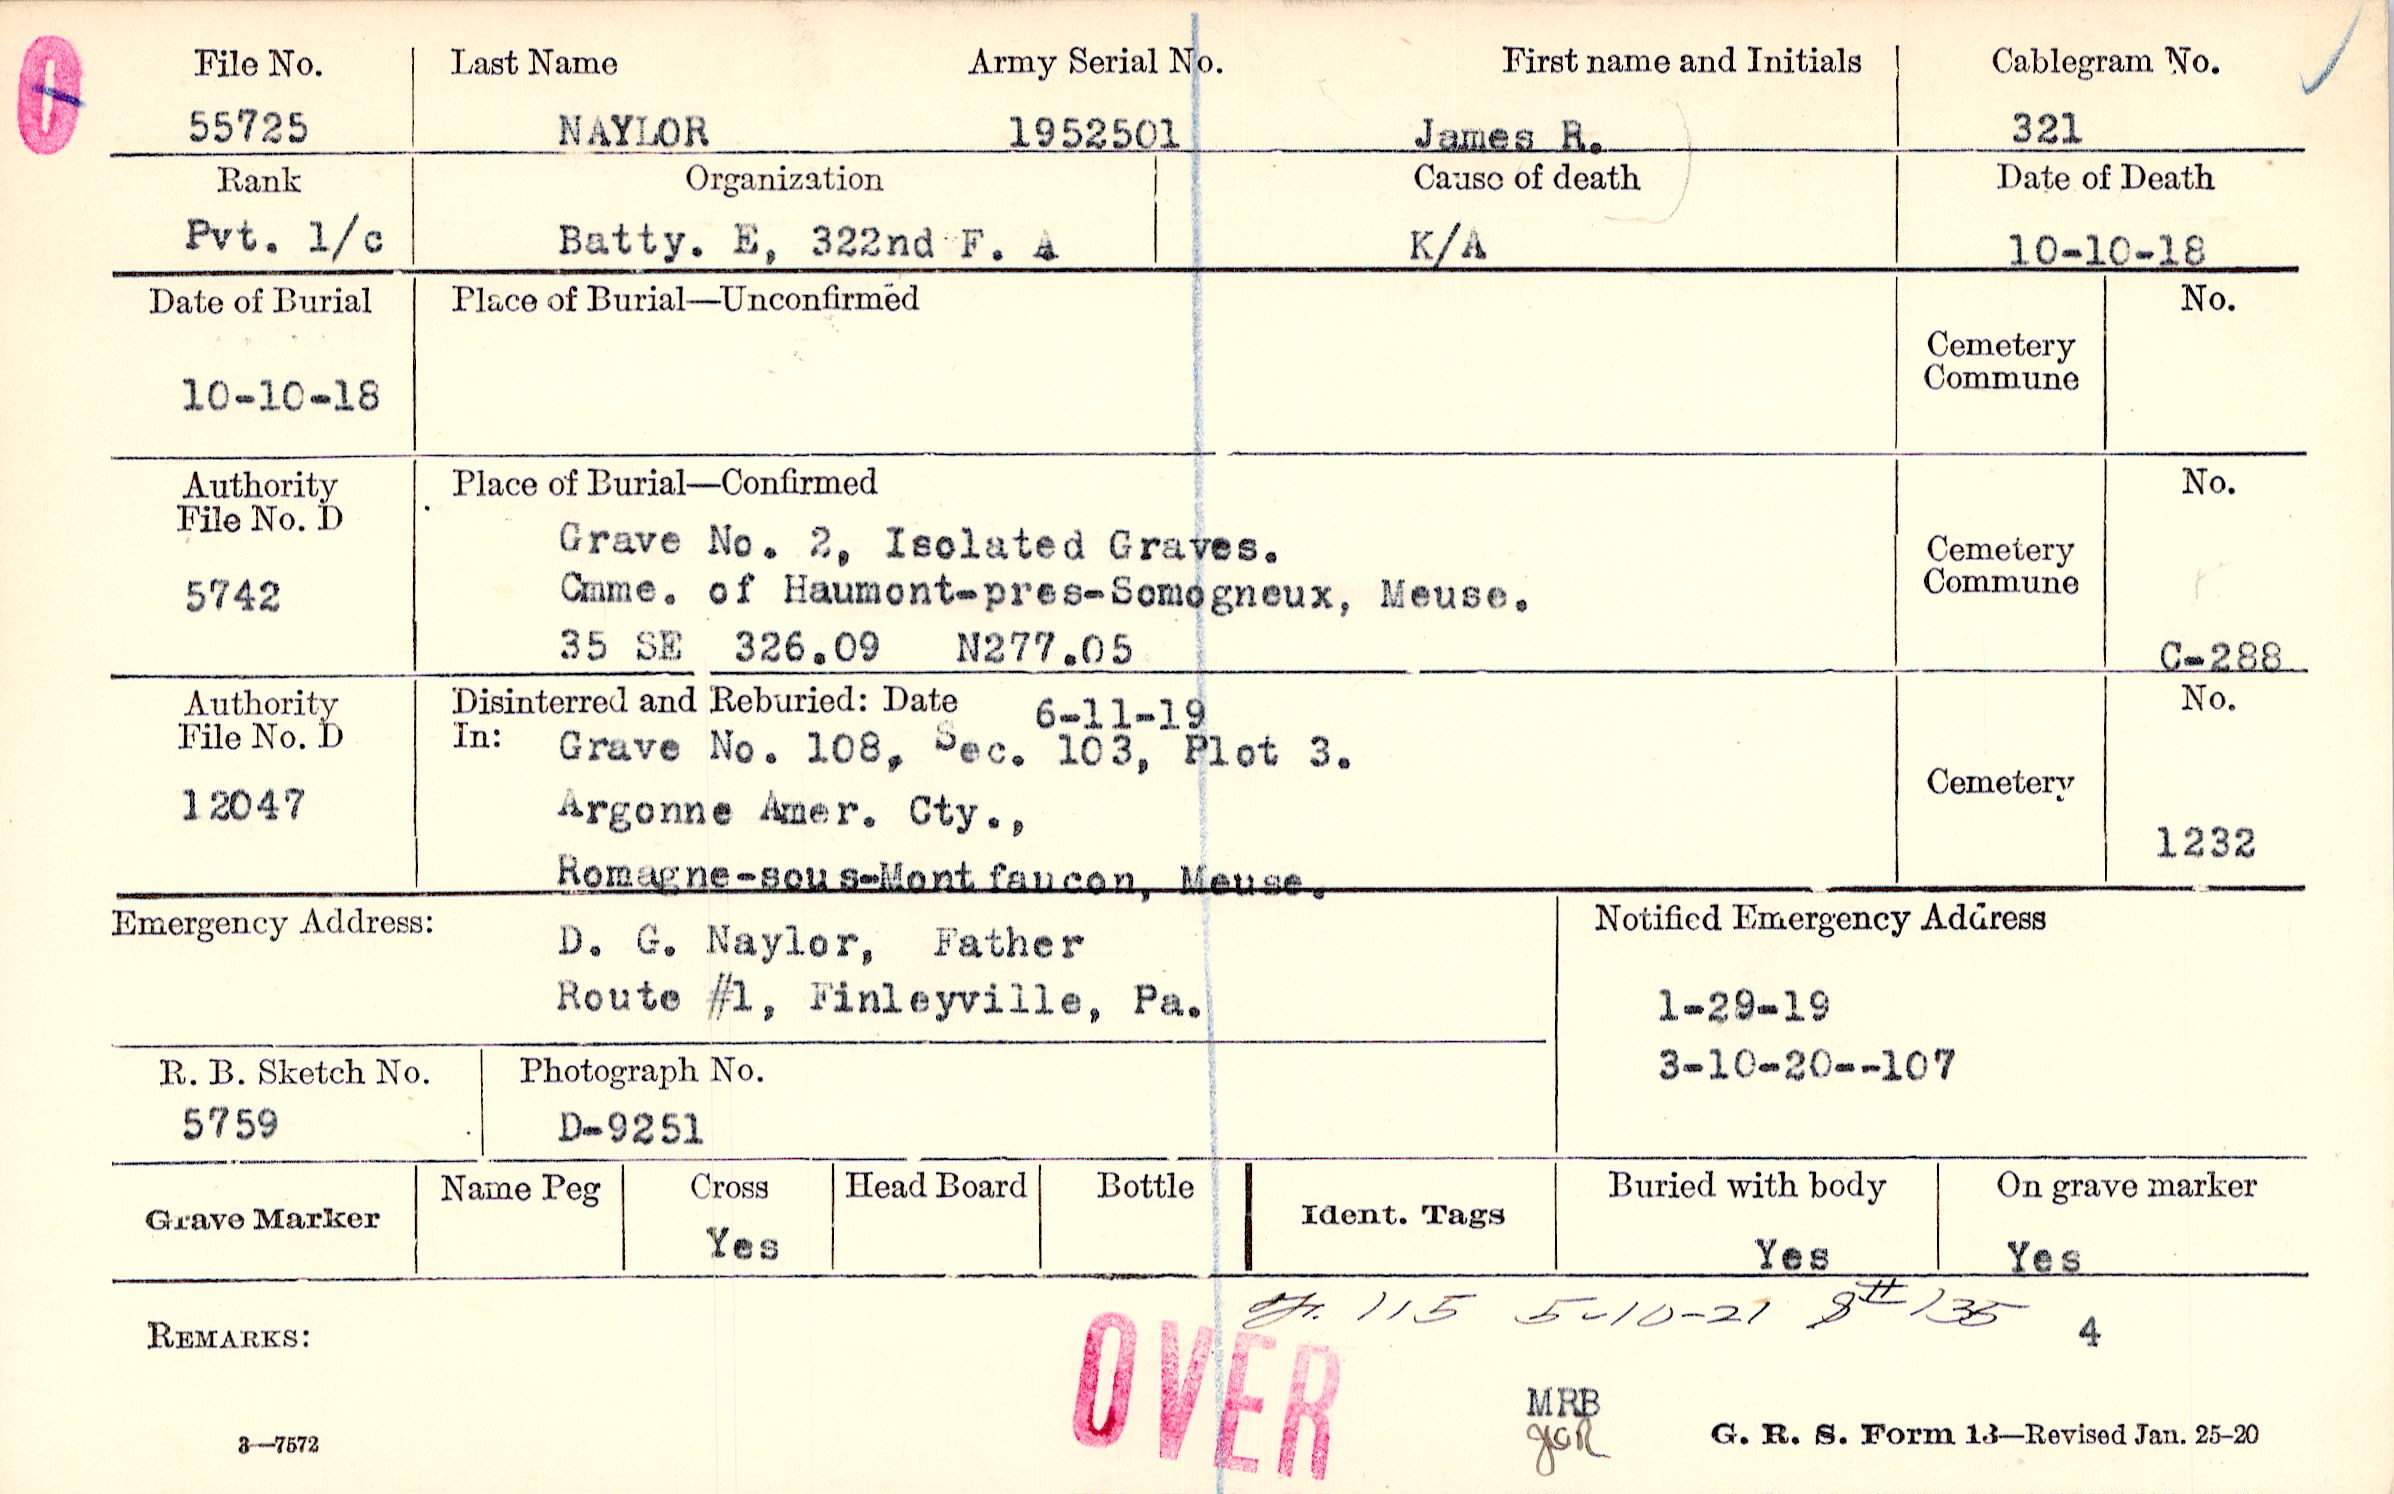 File No. Last Name Army Serial No. First name and Initials Cablegram No.
55725 NAYLOR 1952501 James R. 321
Rank Organization Cause of death Date of Death
Pvt. 1/c Batty. E, 322nd F. A K/A 10-10-18
Date of Burial Place of Burial—Unconfirmed No.
Cemetery
Commune
10-10-18
Authority Place of Burial—Confirmed No.
File No. D
Grave No. 2, Isolated Graves.
Cemetery
Commune
5742 Cmme. of Haumont-pres-Somogneux, Meuse.
35 SE 326.09 N277.05 C-288
Authority Disinterred and Reburied: Date 6-11-19 No.
File No. D In: Grave No. 108, Sec. 103, Plot 3.
Cemetery
12047 Argonne Amer. Cty.,
1232
Romagne-sous-Montfaucon, Meuse.
Emergency Address: D. G. Naylor, Father Notified Emergency Address
Route #1, Finleyville, Pa. 1-29-19
3-10-20--107
R. B. Sketch No. Photograph No.
5759 D-9251
Grave Marker Name Peg Cross Head Board Bottle Ident. Tags Buried with body On grave marker
Yes Yes Yes
115 5-10-21 8# 135 4
REMARKS:
OVER
MRB
3—7572 G. R. S. Form 13—Revised Jan. 25-20